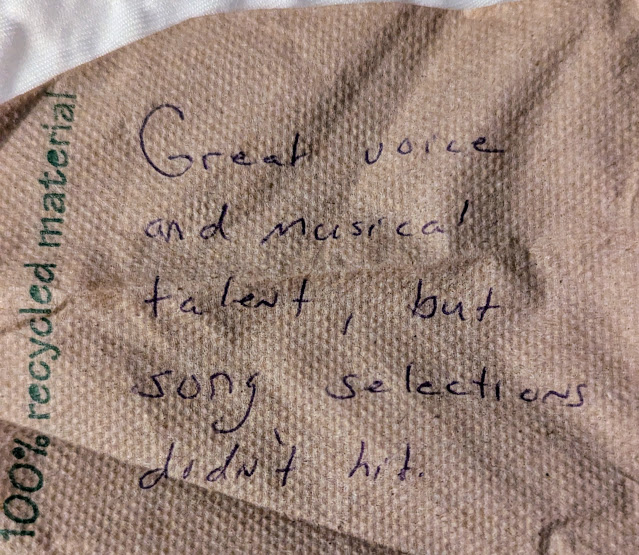 100% recycled material
Great voice
and musical
talent, but
song selections
didn't hit.